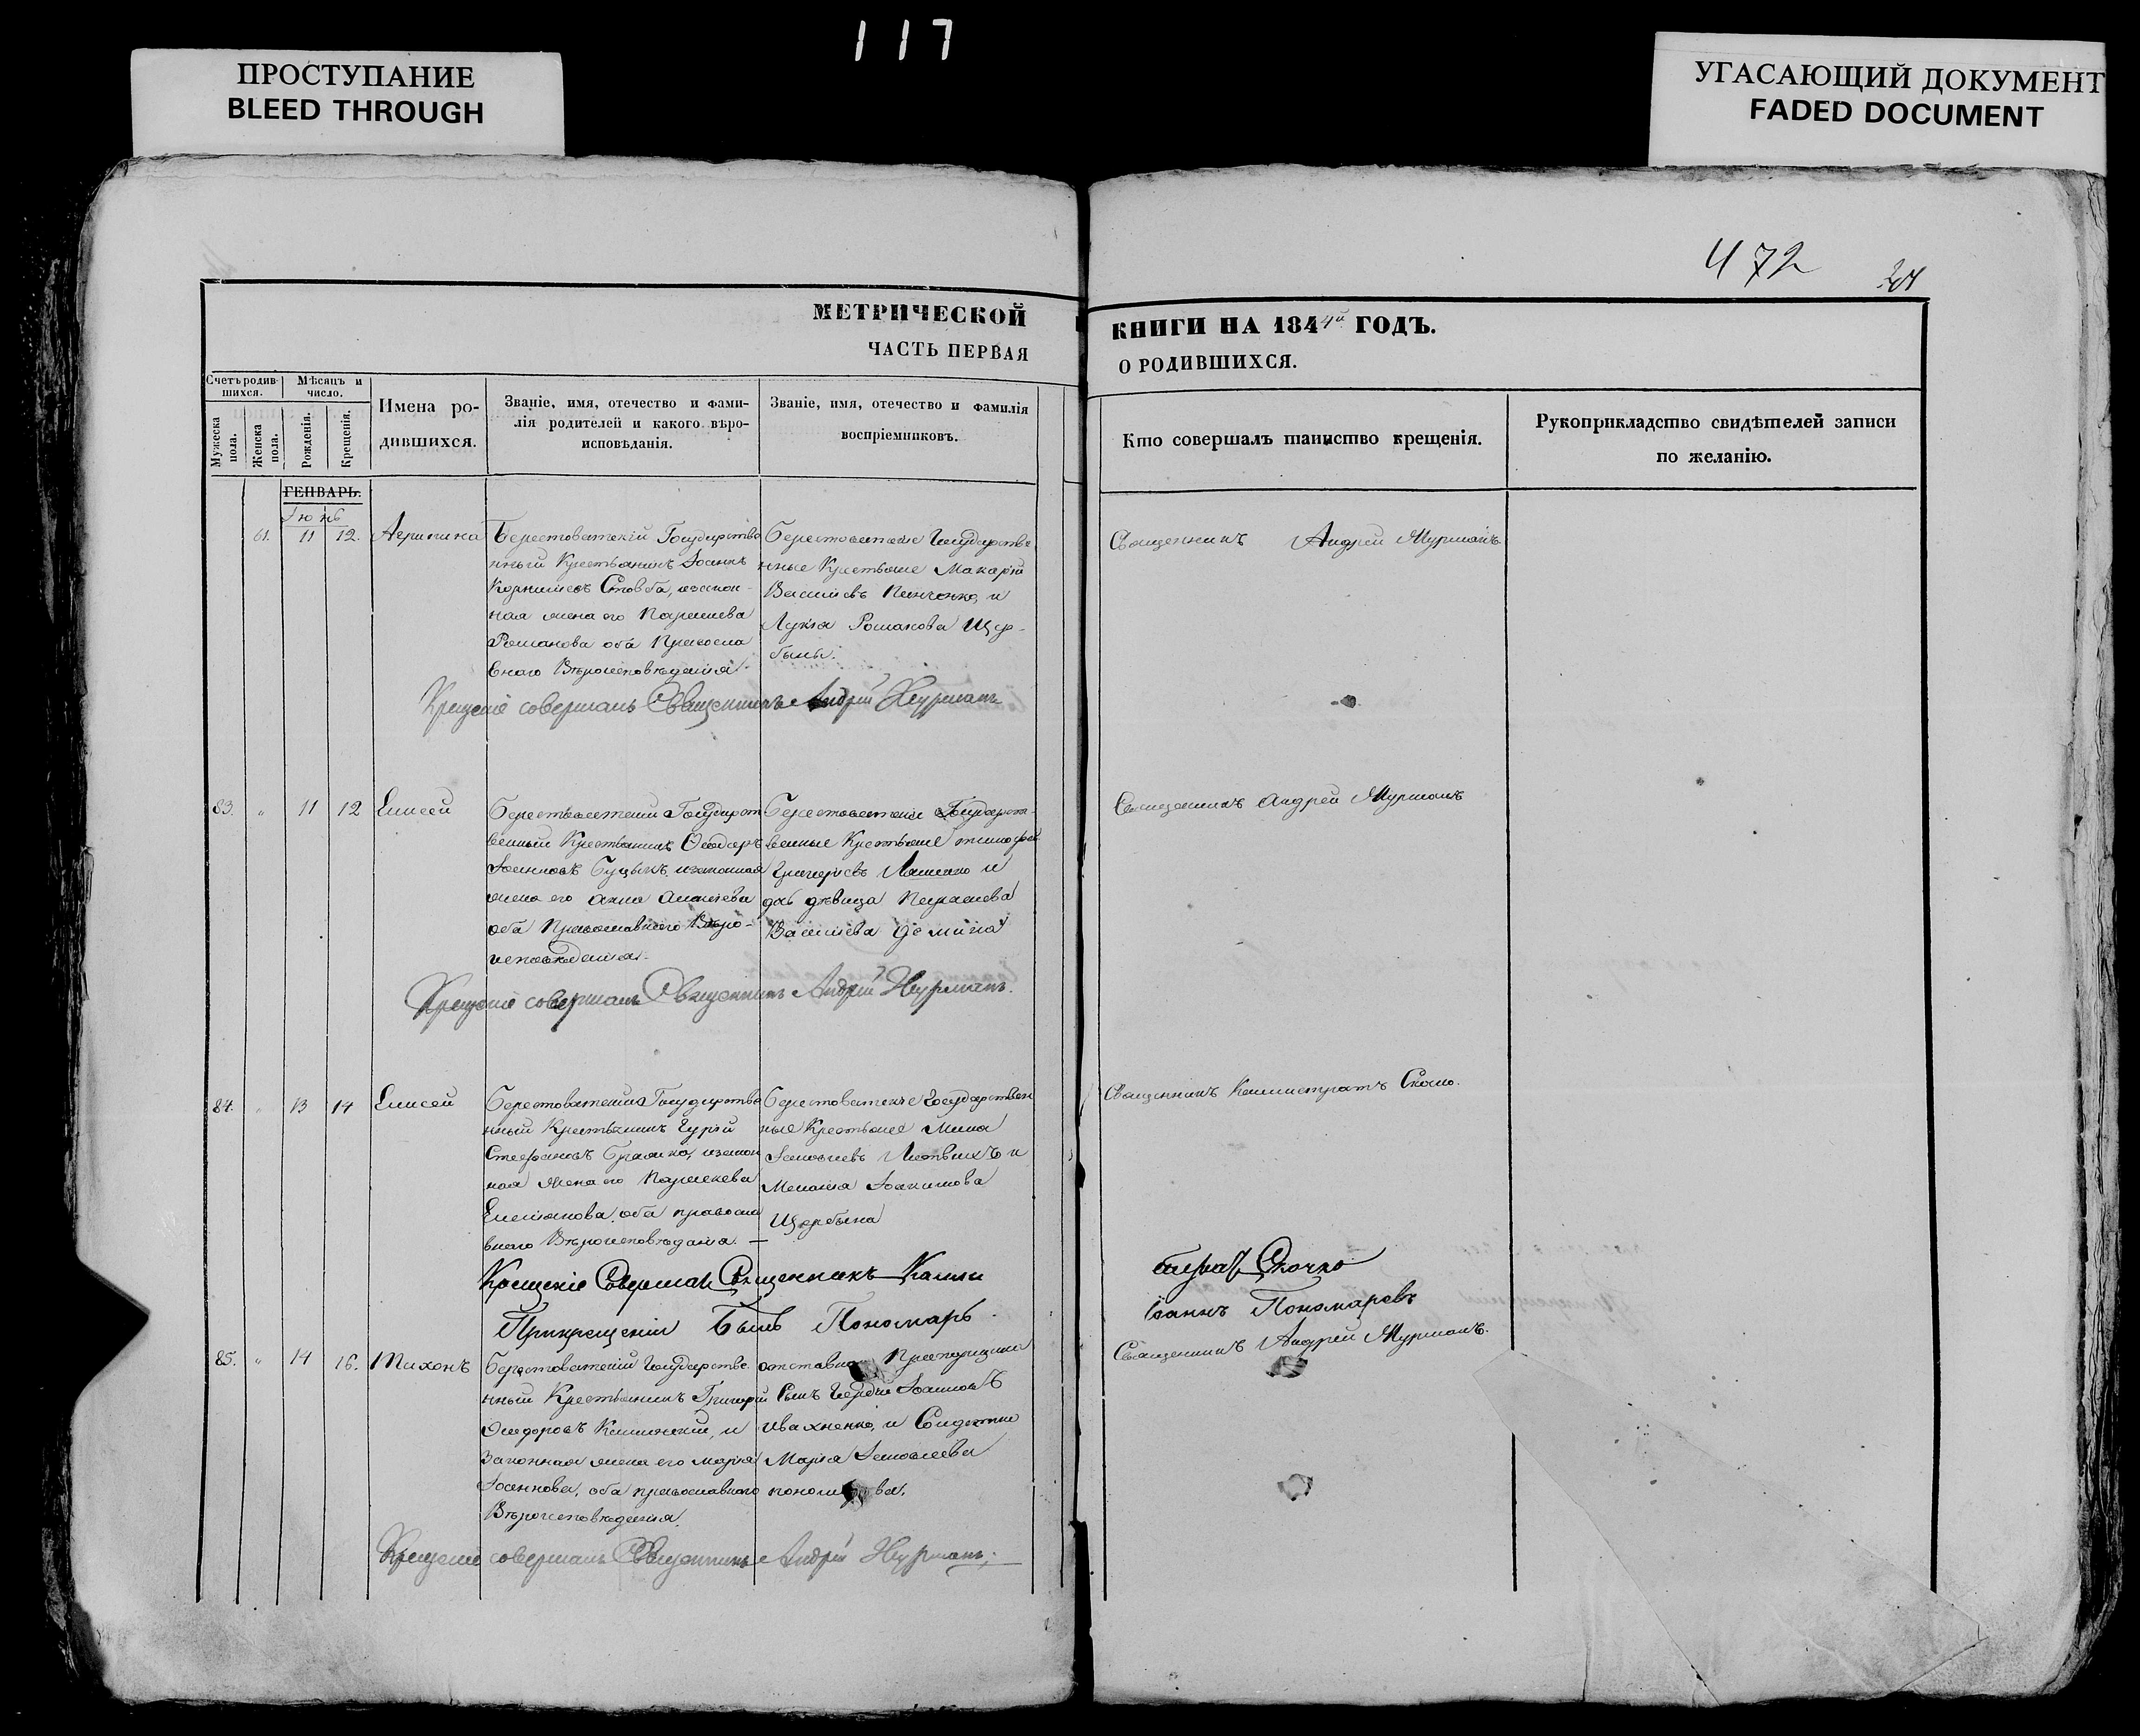 117
ПРОСТУПАНИЕ
BLEED THROUGH
УГАСАЮЩИЙ ДОКУМЕНТ
FADED DOCUMENT
472
МЕТРИЧЕСКОЙ
ЧАСТЬ ПЕРВАЯ
КНИГИ НА 1844й ГОДЪ.
О РОДИВШИХСЯ.
Счетъ родив-
шихся.
Мужеска пола.
Женска пола.
Мѣсяцъ и
число.
Рожденія.
Крещенія.
Имена ро-
дившихся.
Званіе, имя, отечество и фами-
лія родителей и какого вѣро-
исповѣданія.
Званіе, имя, отечество и фамилія
воспріемниковъ.
Кто совершалъ таинство крещенія.
Рукоприкладство свидѣтелей записи
по желанію.
ГЕНВАРЬ.
Іюнь
61. 11 12.
Агрипина
Берестоватскій Государстве
нный Крестьянинъ Іоаннъ
Корниліевъ Стовба, изакон-
ная жена его Параскева
Романова оба Правосла
внаго Вѣроисповѣданія
Берестоватскіе Государстве
нные Крестьяне Макарій
Василіевъ и
Лукія Романова Щер-
бына.
Священникъ Андрей Мурманъ
Крещеніе совершалъ Священникъ Андрей Мурманъ
83. " 11 12
Елисей
Берестоватскій Государст
венный Крестьянинъ Ѳеодоръ
Іоанновъ Буцыкъ, изаконная
жена его Анна
оба Православнаго Вѣро-
исповѣданія.
Берестоватскіе Государст-
венные Крестьяне Тимофей
Григоріевъ и
дѣвица Параскева
Василіева
Священникъ Андрей Мурманъ
Крещеніе совершалъ Священникъ Андрей Мурманъ.
84. " 13 14
Елисей
Берестоватскій Государстве
нный Крестьянинъ Гурій
Стефановъ изакон
ная жена его Параскева
Емеліянова, оба правосла
внаго Вѣроисповѣданія. —
Берестоватскіе Государствен
ные Крестьяне Мина
Іаковлевъ Литвинъ и
Меланія Іоакимова
Щербына
Священникъ Каллистратъ Скочко.
Крещеніе Совершалъ Священникъ Калли
стратъ Скочко
При крещеніи Былъ Пономарь
Іоаннъ Пономаревъ
85. " 14 16.
Тихонъ
Берестоватскій Государстве
нный Крестьянинъ Григорій
Ѳеодоровъ и
Законная жена его Марія
Іоаннова, оба православнаго
Вѣроисповѣданія.
отставнаго
Сынъ Іоанновъ
Ивахненко, и
Марія Іаковлева
Священникъ Андрей Мурманъ.
Крещеніе совершалъ Священникъ Андрей Мурманъ.